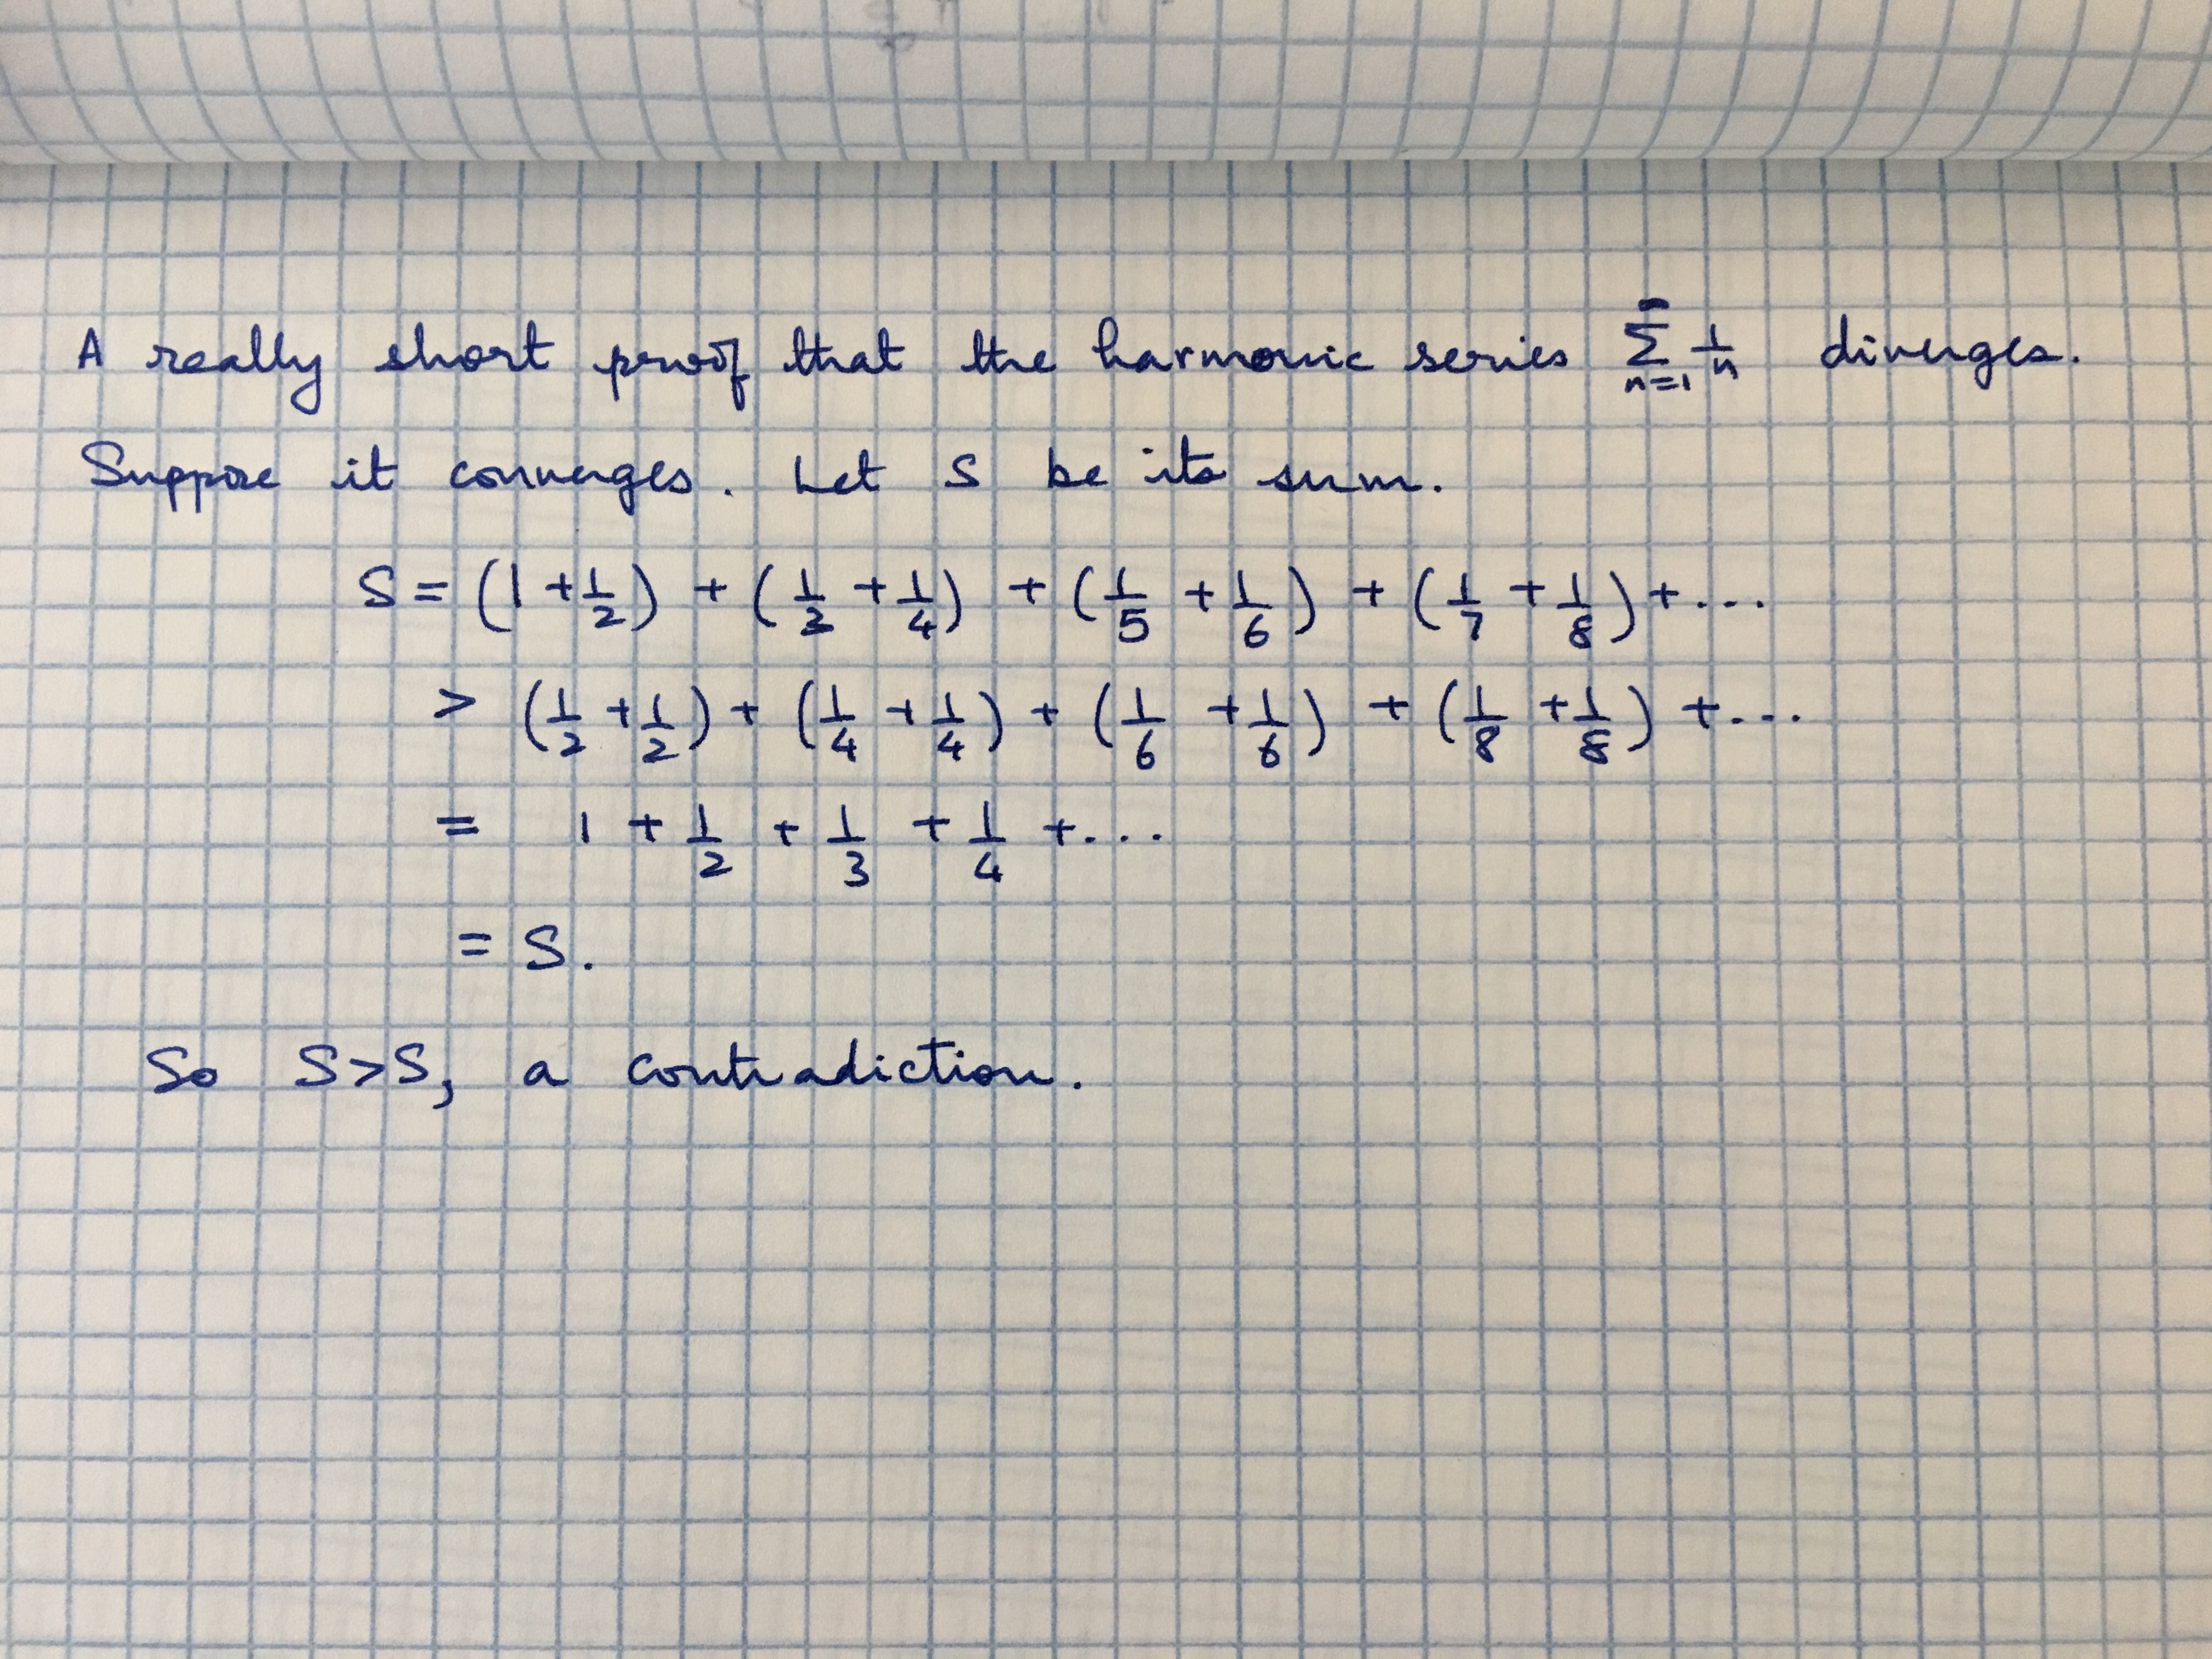 A really short proof that the harmonic series ∑_{n=1}^{∞} 1/n diverges.
Suppose it converges. Let S be its sum.
S = (1 + 1/2) + (1/3 + 1/4) + (1/5 + 1/6) + (1/7 + 1/8) + ...
> (1/2 + 1/2) + (1/4 + 1/4) + (1/6 + 1/6) + (1/8 + 1/8) + ...
= 1 + 1/2 + 1/3 + 1/4 + ...
= S.
So S>S, a contradiction.